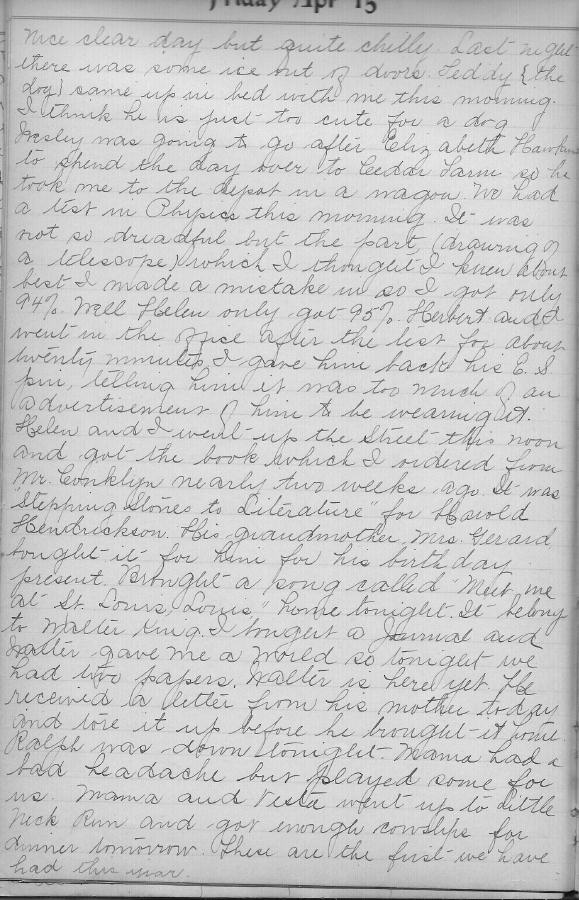 Friday Apr 15
Nice clear day but quite chilly. Last night
there was some ice out of doors. Teddy {the
dog} came up in bed with me this morning.
I think he is just too cute for a dog
Wesley was going to go after Elizabeth Hawkins
to spend the day over to Cedar Farm so he
took me to the depot in a wagon. We had
a test in Physics this morning. It was
not so dreadful but the part (drawing of
a telescope) which I thought I knew about
best I made a mistake in so I got only
94%. Well Helen only got 95%. Herbert and I
went in the office after the test for about
twenty minutes I gave him back his E. S.
pin, telling him it was too much of an
advertisement of him to be wearing it.
Helen and I went up the street this noon
and got the book which I ordered from
Mr. Conklyn nearly two weeks ago. It was
Stepping Stones to Literature" for Harold
Hendrickson. His grandmother, Mrs. Gerard,
bought it for him for his birthday
present. Brought a song called "Meet me
at St. Louis, Louis," home tonight. It belong
to Walter King. I bought a Journal and
Walter gave me a World so tonight we
had two papers. Walter is here yet. He
received a letter from his mother today
and tore it up before he brought it home.
Ralph was down tonight. Mama had a
bad headache but played some for
us. Mama and Vesta went up to Little
Neck Run and got enough cowslips for
dinner tomorrow. These are the first we have
had this year.